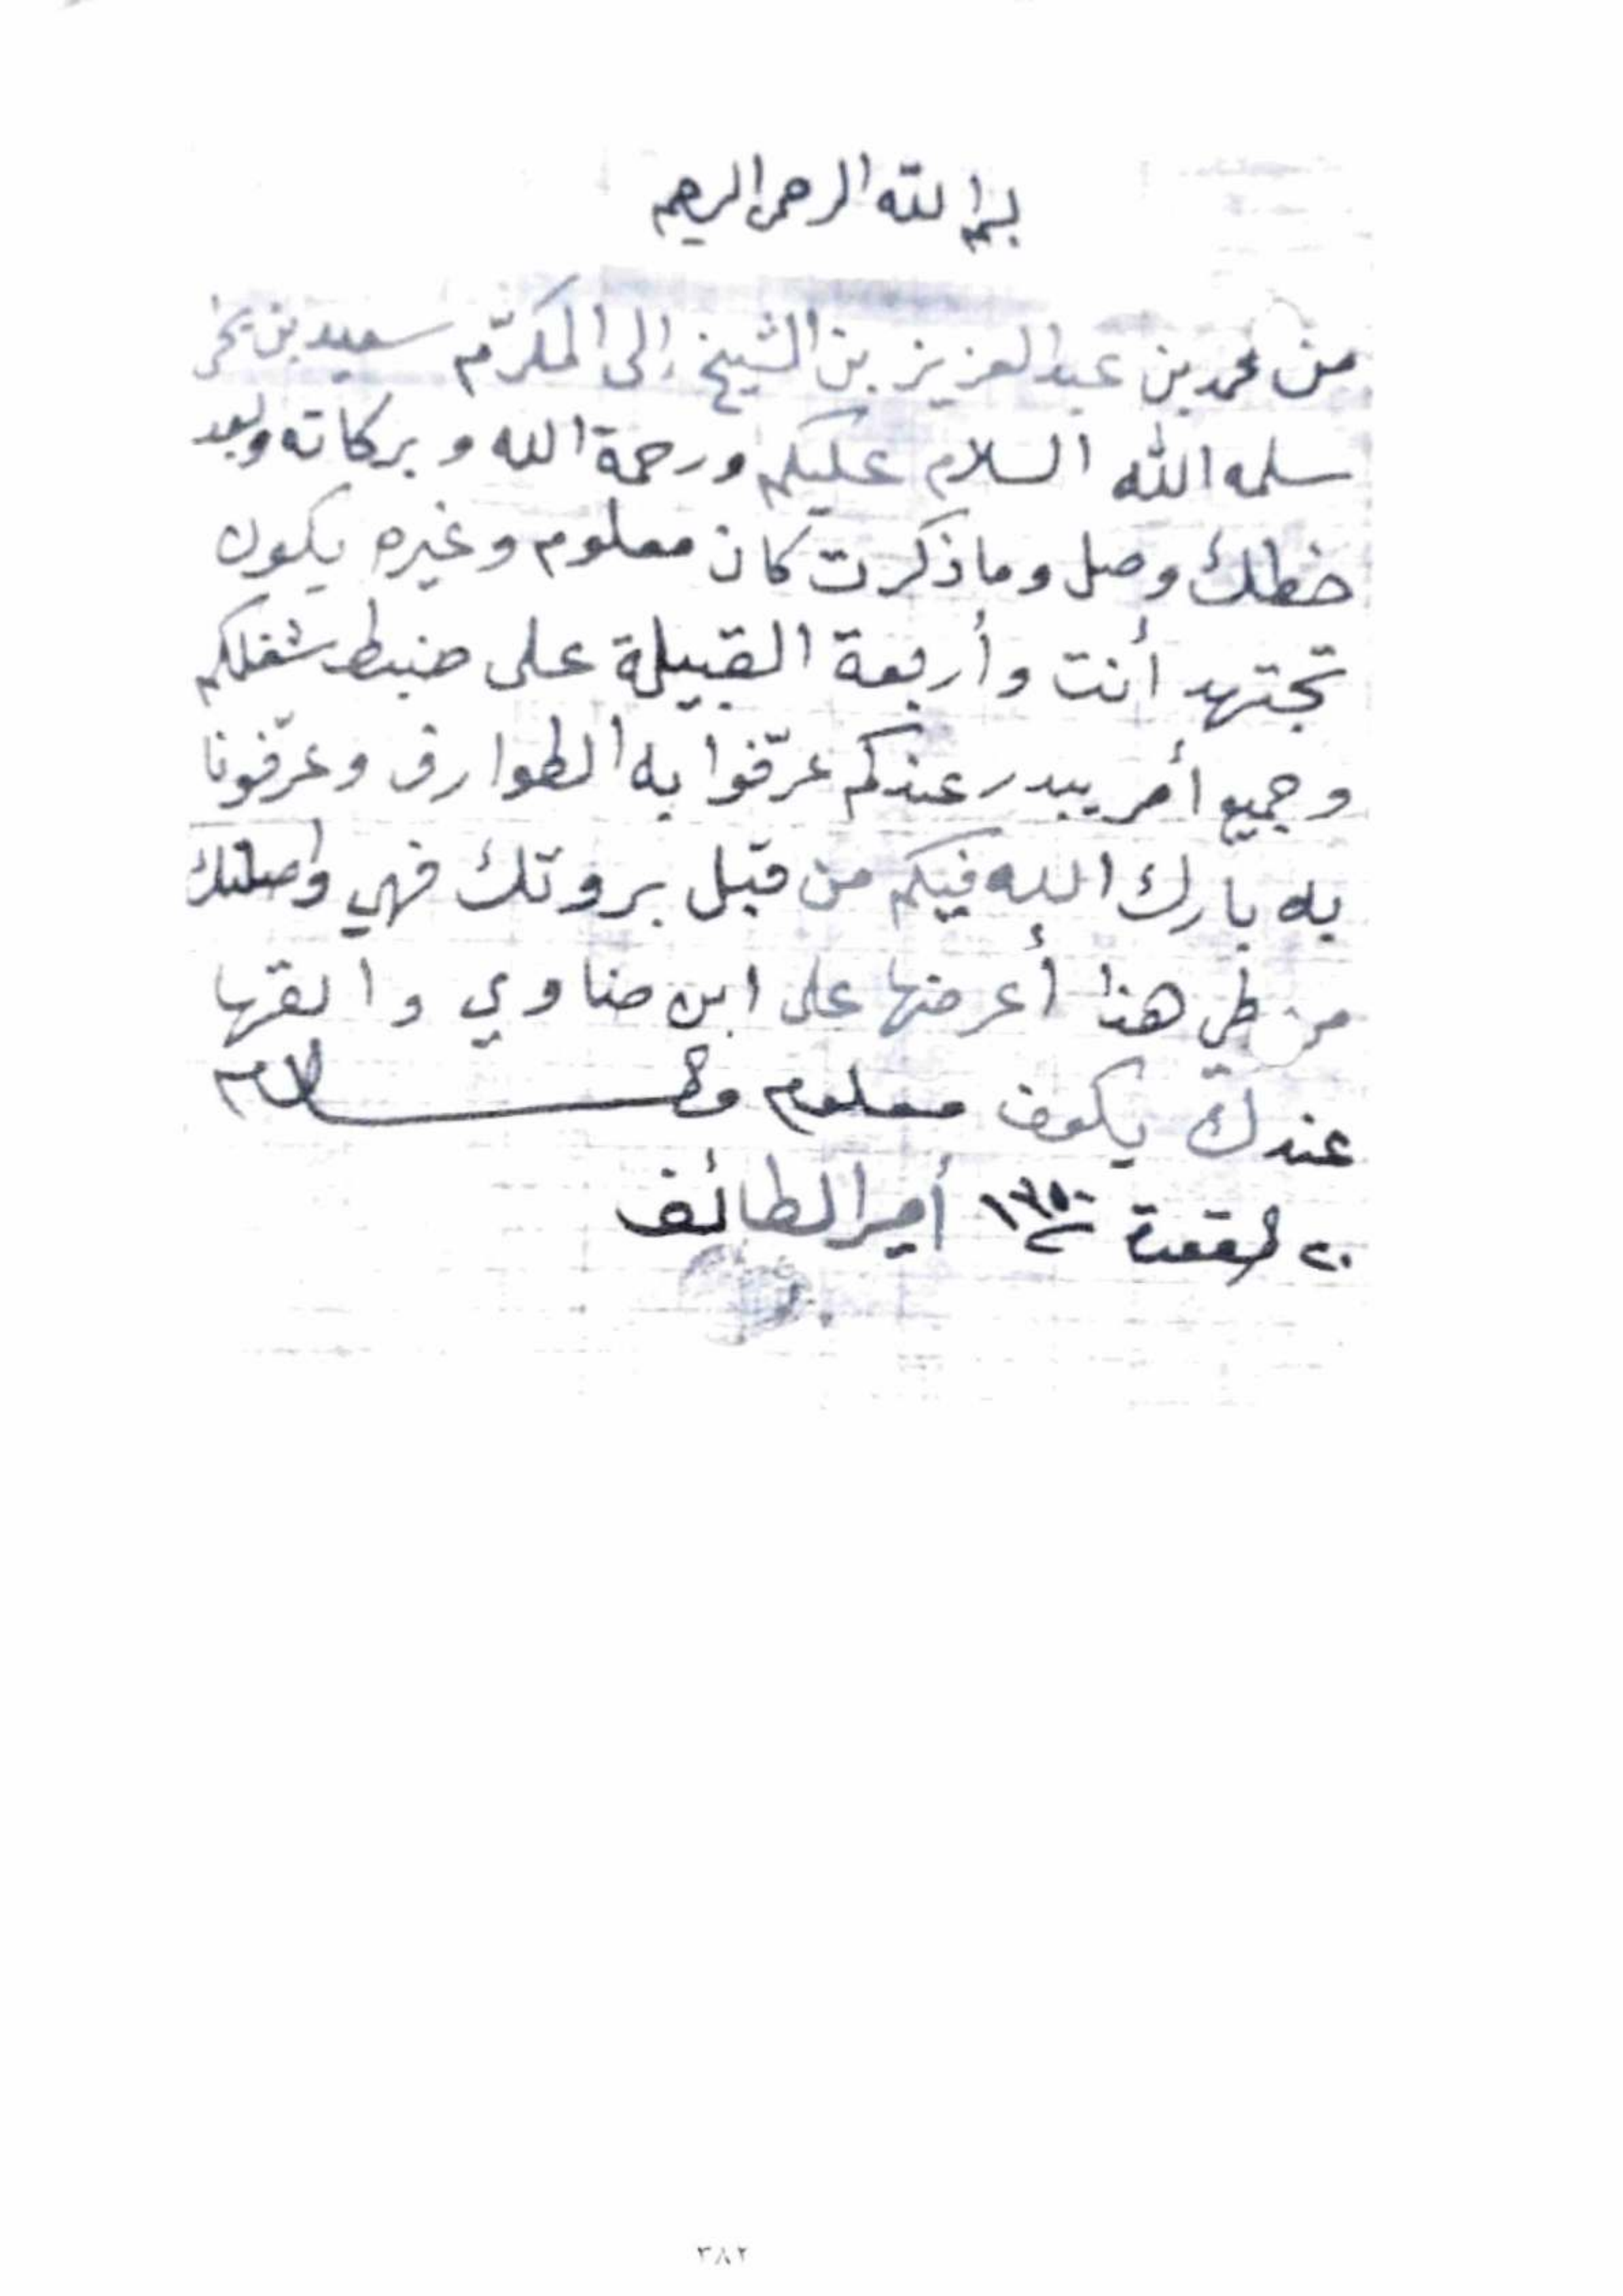 بسم الله الرحمن الرحيم
من محمد بن عبدالعزيز بن الشيخ إلى المكرّم سعيد بن
سلمه الله السلام عليكم ورحمة الله وبركاته وبعد
خطك وصل وما ذكرت كان معلوم وغيره يكون
تجتهد أنت وأربعة القبيلة على ضبط شغلكم
وجميع أمر يبدر عندكم عرّفوا به الطوارق وعرّفونا
به بارك الله فيكم من قبل بروتك فهي واصلتك
من طي هذا أعرضها على ابن ضاوي وابقها
عندك يكون معلوم والسلام
٢٠ القعدة ١٣٥٠ أمير الطائف
٣٨٢